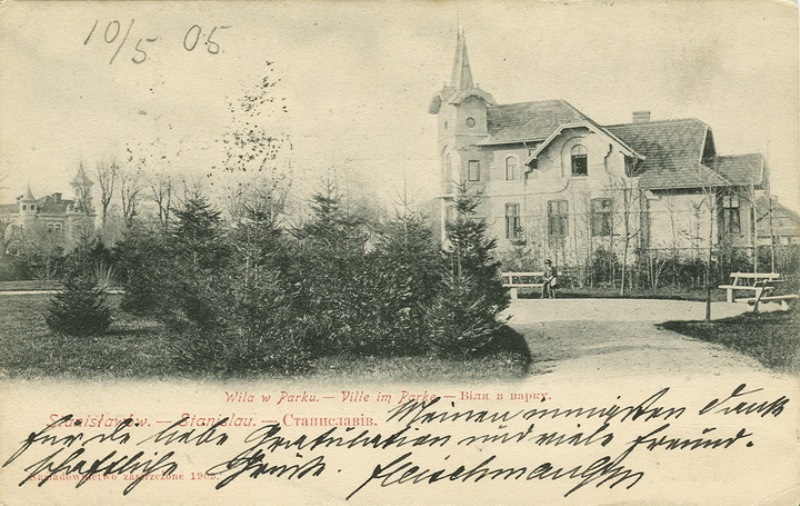 10/5 05.
Wila w Parku. — Ville im Parke — Віля в парку.
Stanisławów. — Stanislau. — Станиславів.
Meinen innigsten Dank
für die liebe Gratulation und viele freund-
schaftliche Grüße.
Nakładownictwo zastrzeżone 1903.